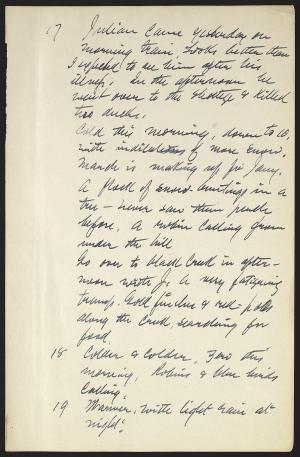 17 Julian came yesterday on
morning train, looks better than
I expected to see him after his
illness. In the afternoon he
went over to the Shattega & killed
two ducks.
Cold this morning, down to 10,
with indications of more snow.
March is making up for Jany.
A flock of snow-buntings in a
tree — never saw them perch
before. A robin calling from
under the hill
Go over to black Creek in after-
noon with J, a very fatiguing
tramp. Gold finches & red-polls
along the Creek, searching for
food.
18 Colder & colder, Zero this
morning, Robins & blue birds
calling.
19 Warmer, with light rain at
night.